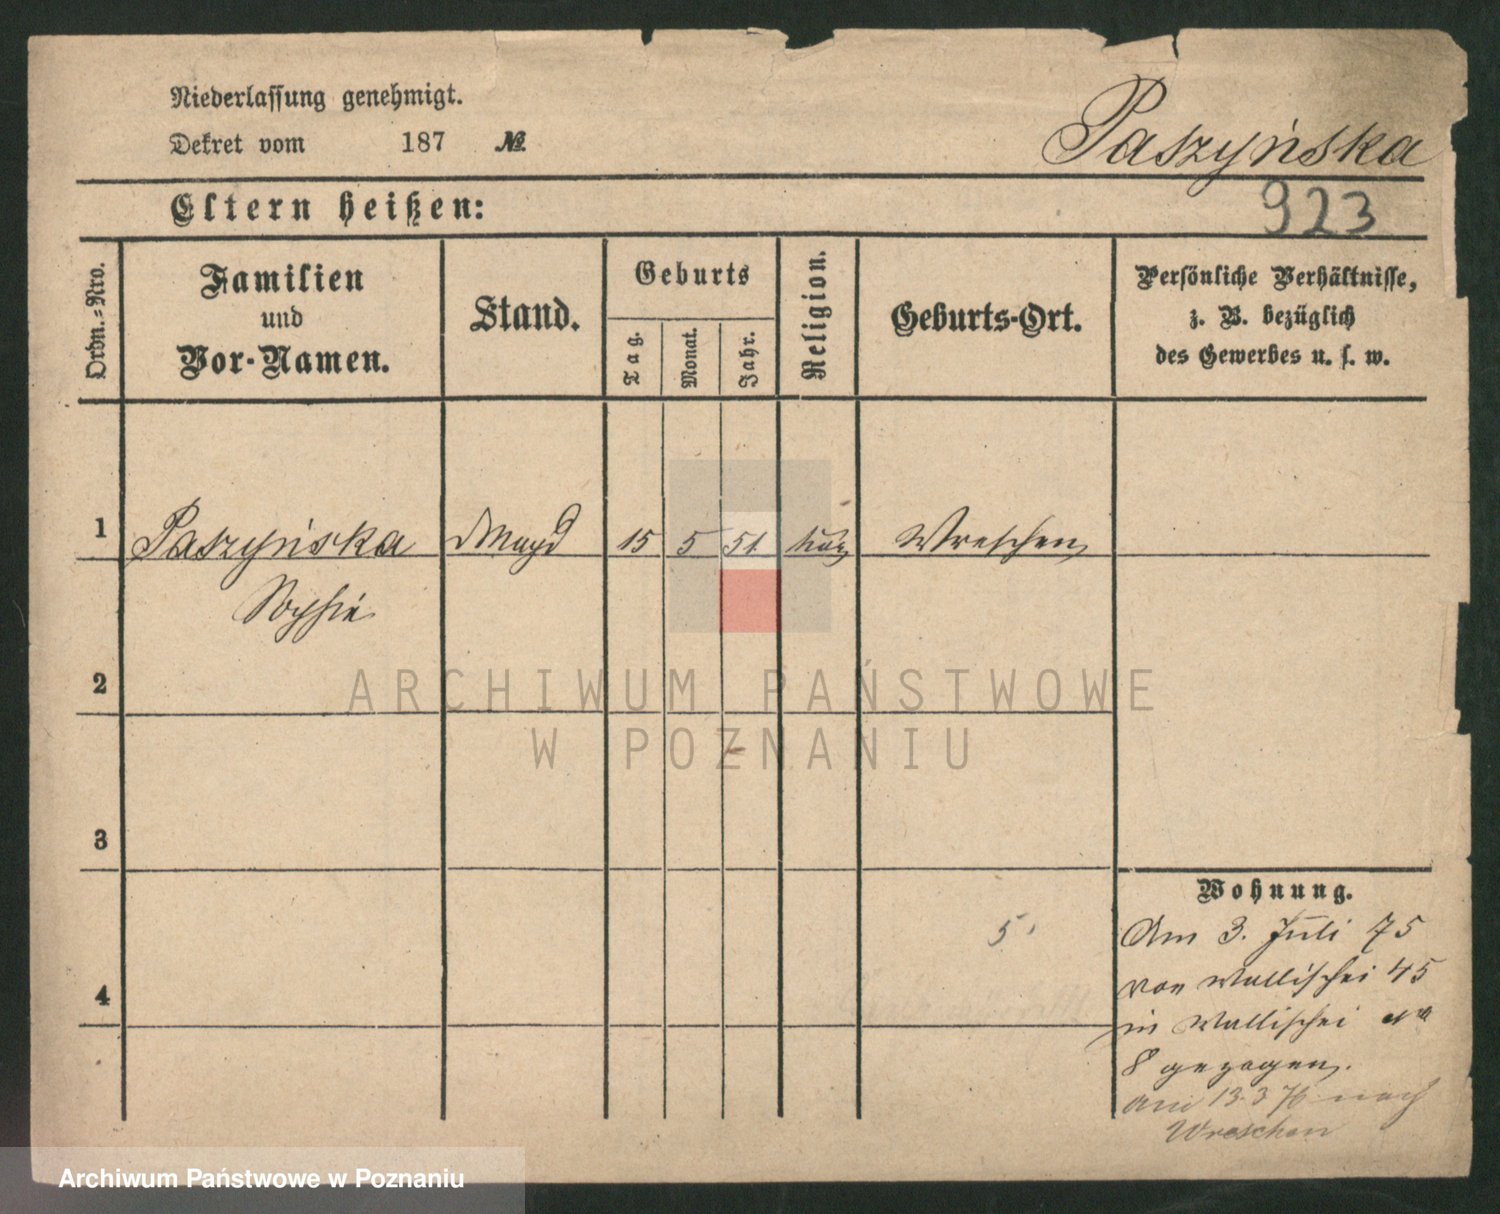 Niederlassung genehmigt.
Dekret vom 187 №
Paszyńska
923
Eltern heißen:
Ordn.-Nro.
Familien
und
Vor-Namen.
Stand.
Geburts
Tag.
Monat.
Jahr.
Religion.
Geburts-Ort.
Persönliche Verhältnisse,
z. B. bezüglich
des Gewerbes u. s. w.
1 Paszyńska Magd 15 5 51. Wreschen
Sophie
2
ARCHIWUM PAŃSTWOWE
W POZNANIU
3
Wohnung.
Am 3. Juli 75
von Wallischei 45
in Wallischei
8 gezogen.
am 13.3 76 nach
Wreschen
5.
4
Archiwum Państwowe w Poznaniu